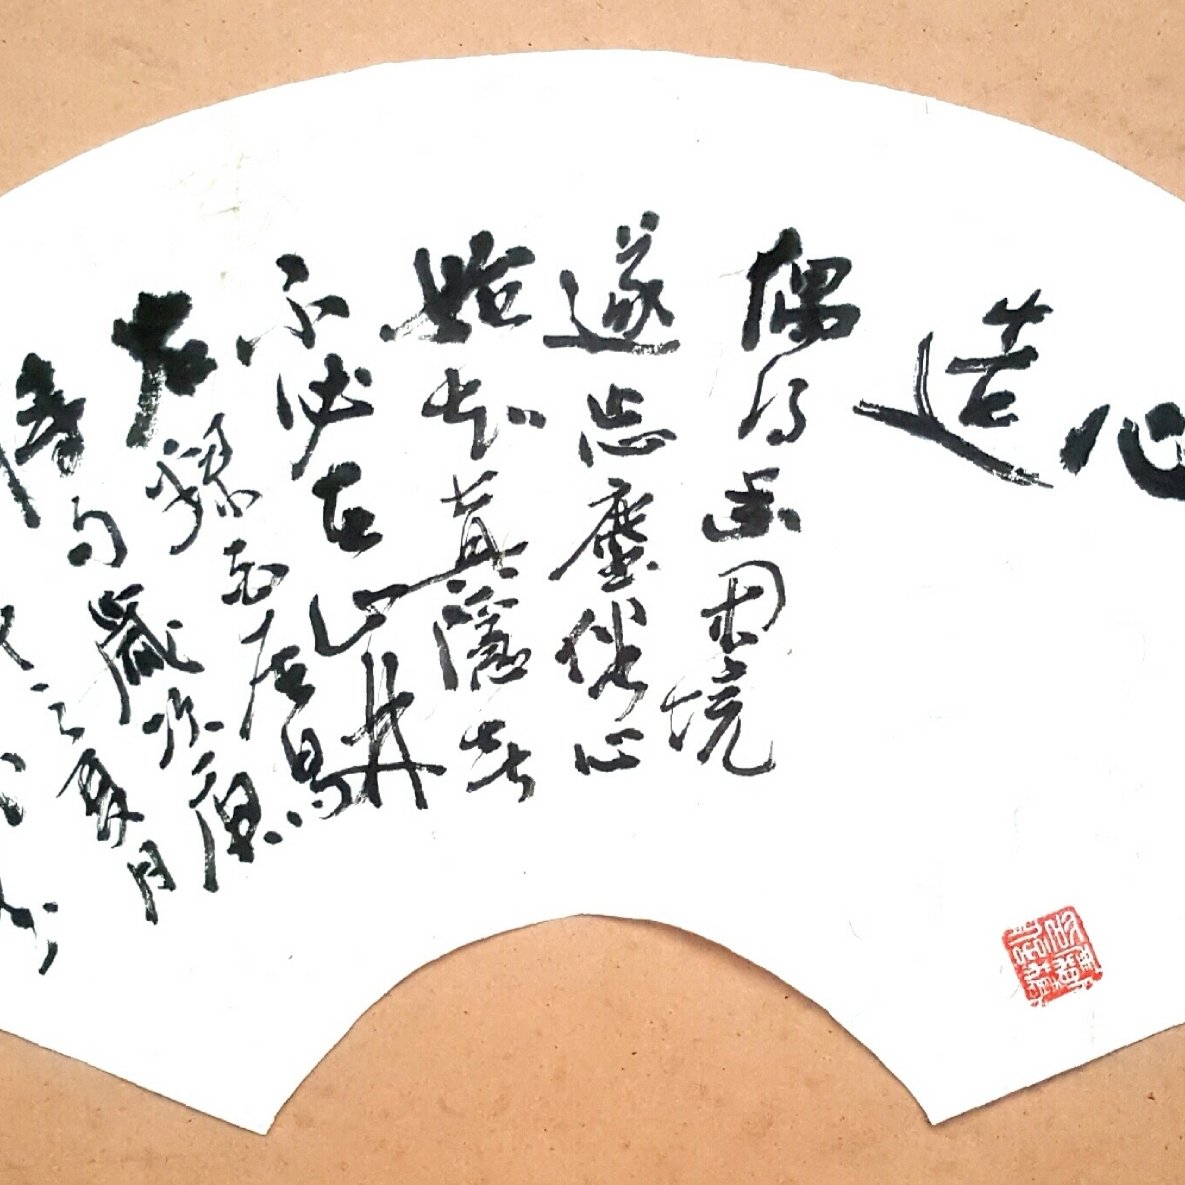 心造
偶得幽閑境
遂忘塵俗心
始知真隱者
不必在山林
右錄白居易
詩句歲次
之夏月